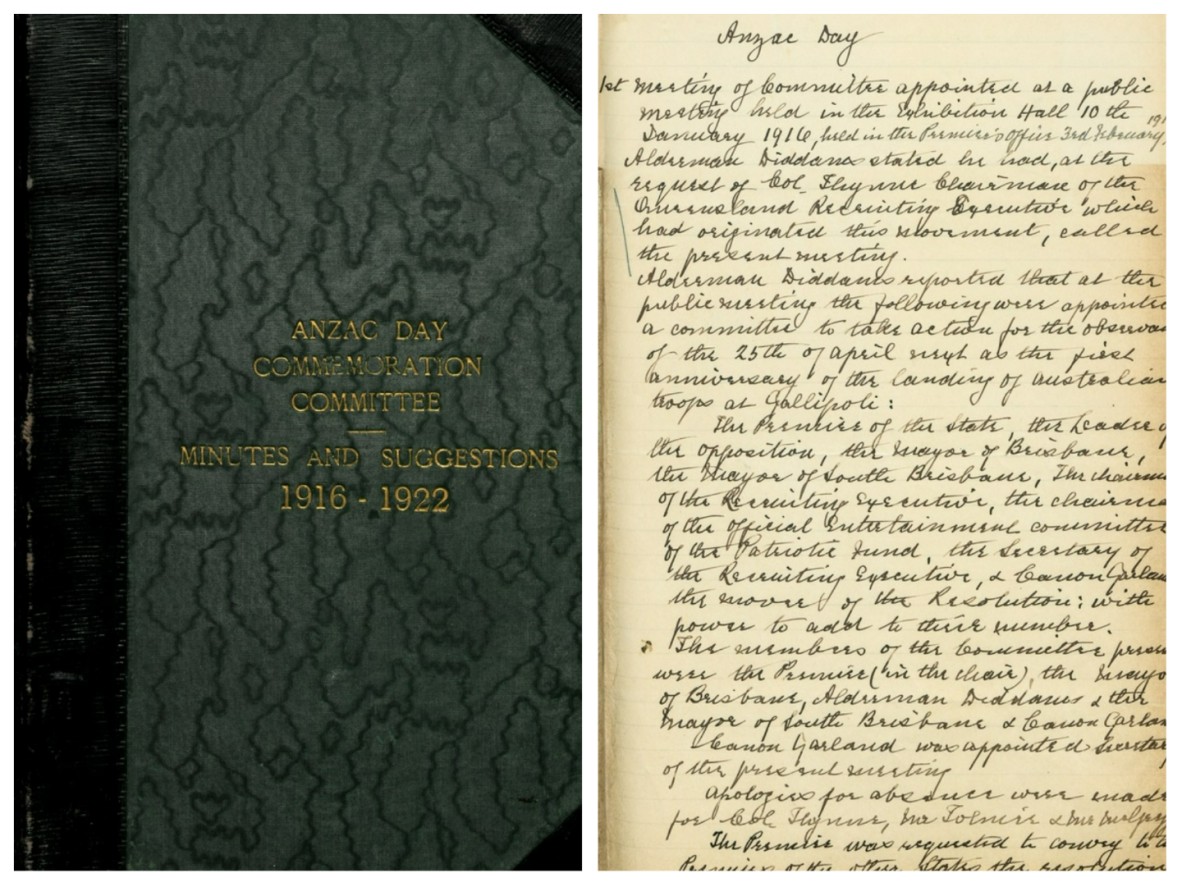 ANZAC DAY
COMMEMORATION
COMMITTEE
MINUTES AND SUGGESTIONS
1916 - 1922
Anzac Day
1st meeting of Committee appointed at a public
meeting held in the Exhibition Hall 10th
January 1916, held in the Premier's Office 3rd February, 191
Alderman Diddams stated he had, at the
request of Col. Thynne Chairman of the
Queensland Recruiting Executive which
had originated this movement, called
the present meeting.
Alderman Diddams reported that at the
public meeting the following were appointed
a committee to take action for the observan
of the 25th of april next as the first
anniversary of the landing of australian
troops at Gallipoli:
The Premier of the State, the Leader o
the opposition, the Mayor of Brisbane,
the Mayor of South Brisbane, The chairma
of the Recruiting Executive, the chairma
of the official Entertainment committee
of the Patriotic Fund, the Secretary of
the Recruiting Executive, & Canon Garlan
the mover of the Resolution; with
power to add to their number.
The members of the Committee presen
were the Premier (in the chair), the Mayo
of Brisbane, Alderman Diddams & the
Mayor of South Brisbane & Canon Garlan
Canon Garland was appointed Secretar
of the present meeting
apologies for absence were made
for Col. Thynne, Mr Tolmie & Mr
The Premier was requested to convey to t
Premiers of the other States the resolution